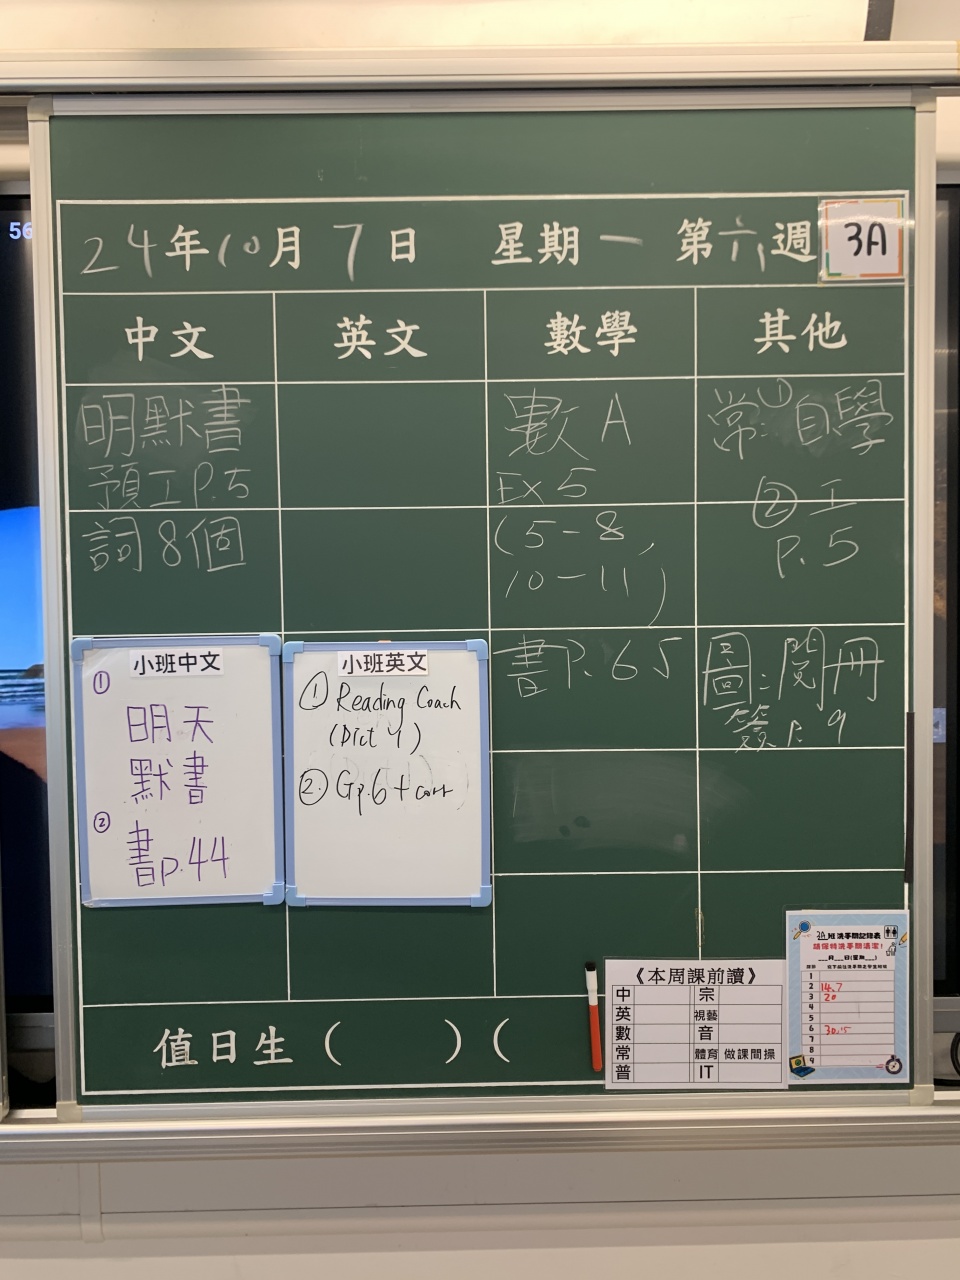 56
24年10月7日 星期一 第六週
3A
中文 英文 數學 其他
明默書
預工P.5
詞8個
數A
Ex 5
(5-8,
10-11)
書P.65
常:①自學
②工
P.5
圖:閱冊
簽P.9
小班中文
①
明天
默書
②
書p.44
小班英文
① Reading Coach
(Dict 4)
② Gp.6 + corr
值日生( )(
《本周課前讀》
中 宗
英 視藝
數 音
常 體育 做課間操
普 IT
3A班洗手間記錄表
請保持洗手間清潔!
___月___日(星期___)
1
2 14.7
3 20
4
5
6 30.15
7
8
9